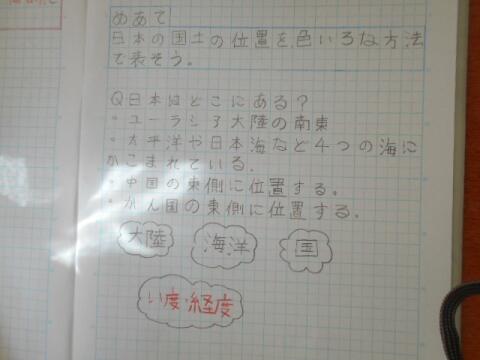 めあて
日本の国土の位置を、色いろな方法
で表そう。
Q日本はどこにある?
・ユーラシア大陸の南東
・太平洋や日本海など4つの海に
かこまれている。
・中国の東側に位置する。
・かん国の東側に位置する。
大陸 海洋 国
い度・経度